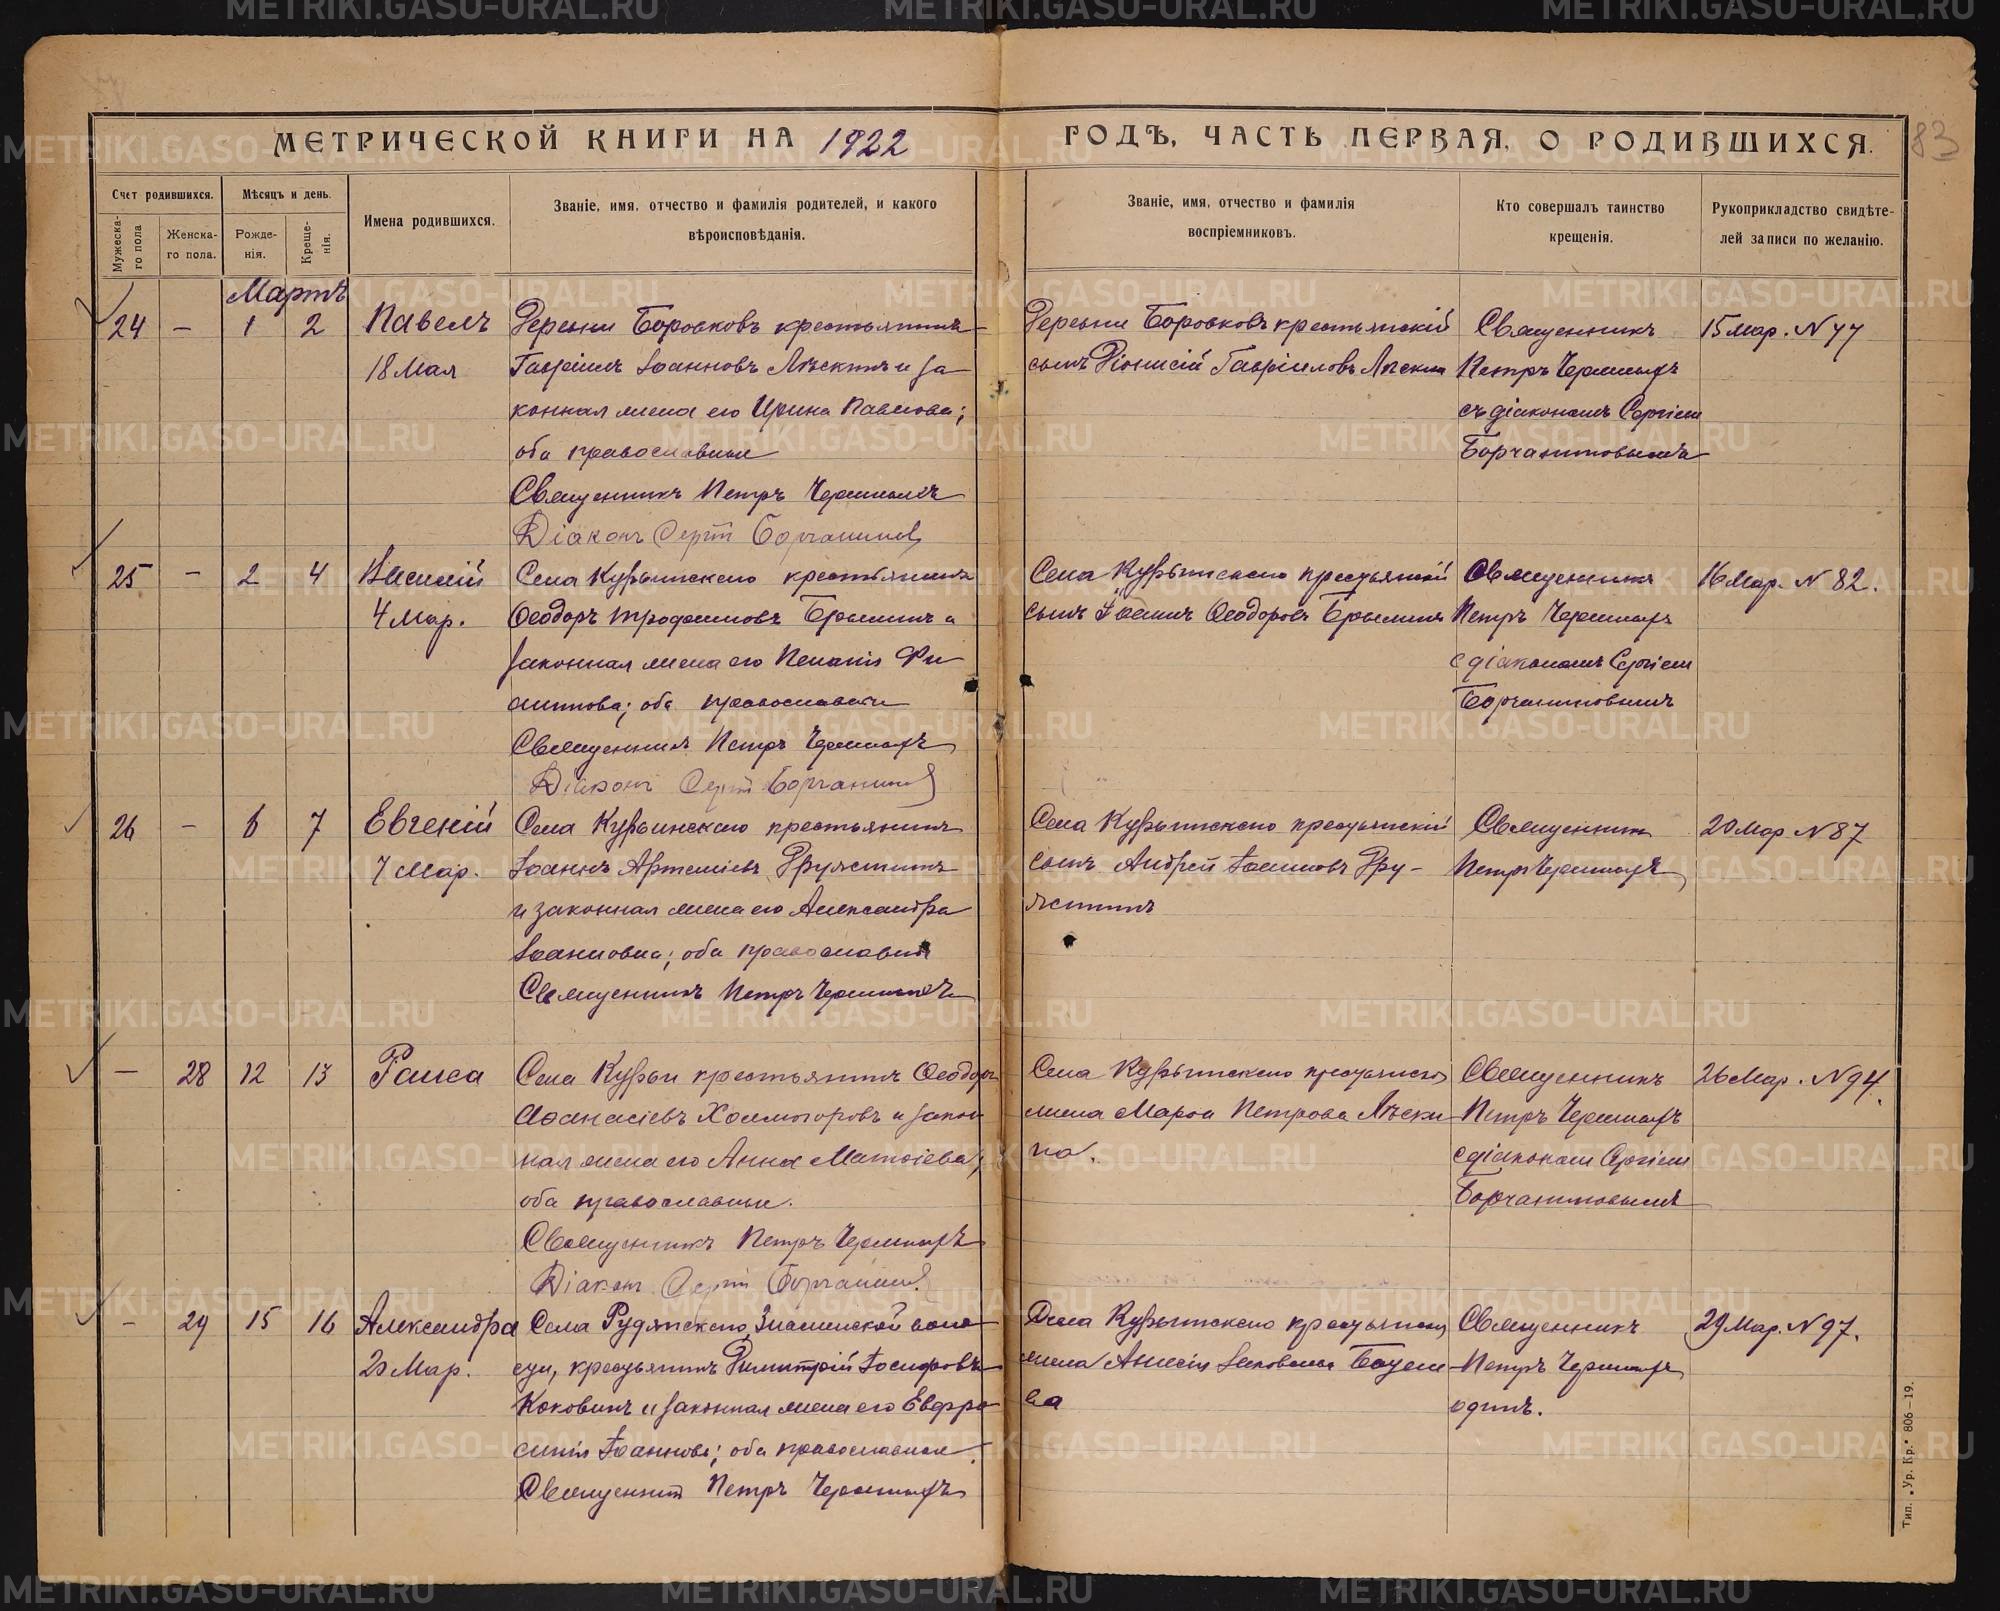 МЕТРИЧЕСКОЙ КНИГИ НА 1922 ГОДЪ, ЧАСТЬ ПЕРВАЯ, О РОДИВШИХСЯ.
83
Счет родившихся.
Мужеска-го пола
Женска-го пола.
Мѣсяцъ и день.
Рожде-нія.
Креще-нія.
Имена родившихся.
Званіе, имя, отчество и фамилія родителей, и какого
вѣроисповѣданія.
Званіе, имя, отчество и фамилія
воспріемниковъ.
Кто совершалъ таинство
крещенія.
Рукоприкладство свидѣте-
лей записи по желанію.
Мартъ
24 — 1 2
Павелъ
18 Мая
Деревни Боровковъ крестьянинъ
Гавріилъ Іоанновъ Лѣскинъ и за
конная жена его Ирина Павлова;
оба православные
Священникъ Петръ
Діаконъ Сергій
Деревни Боровковъ крестьянскій
сынъ Діонисій Гавріиловъ Лѣскинъ
Священникъ
Петръ
съ діакономъ Сергіем
15 Мар. N 77
25 — 2 4
Василій
4 Мар.
Села Курьинскаго крестьянинъ
Ѳеодоръ Трофимовъ и
законная жена его
оба православные
Священникъ Петръ
Діаконъ Сергій
Села Курьинскаго крестьянскій
сынъ Іоаннъ Ѳеодоровъ
Священникъ
Петръ
с діакономъ Сергіем
16 Мар. N 82.
26 — 6 7
Евгеній
7 Мар.
Села Курьинскаго крестьянинъ
Іоаннъ Артеміевъ Дружининъ
и законная жена его Александра
Іоанновна; оба православные
Священникъ Петръ
Села Курьинскаго крестьянскій
сынъ Андрей Іоанновъ Дру-
жининъ
Священникъ
Петръ
20 Мар N 87
— 28 12 13
Раиса
Села Курьи крестьянинъ Ѳеодоръ
Аѳанасіевъ Холмогоровъ и закон
ная жена его Анна Матѳіева;
оба православные.
Священникъ Петръ
Діаконъ Сергій
Села Курьинскаго
жена Марѳа Петрова Лѣски
на.
Священникъ
Петръ
с діакономъ Сергіем
26 Мар. N 94.
— 29 15 16
Александра
20 Мар.
Села Рудянскаго, Знаменской воло
сти, крестьянинъ Димитрій Іосифовъ
Коковинъ и законная жена его Евфро
синія Іоаннова; оба православные.
Священникъ Петръ
Села Курьинскаго
жена
ва
Священникъ
Петръ
одинъ.
29 Мар. N 97.
Тип. „Ур. Кр.“ 806—19.
METRIKI.GASO-URAL.RU